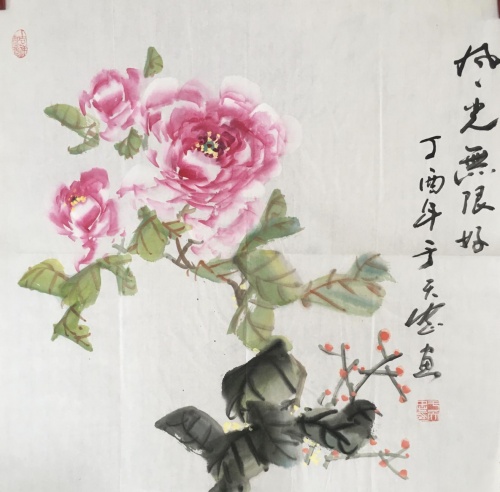 风光無限好
丁酉年于天画